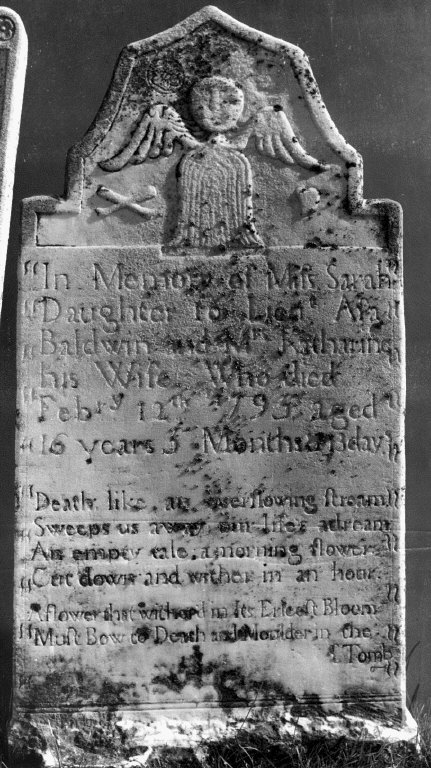 "In Memory of Miſs Sarah"
"Daughter to Lieut Aſa"
"Baldwin and Mrs Katharine"
his Wife. Who died
"Febry 12th 1793 aged"
"16 years 3 Months 13 day"
"Death like an overflowing ſtream"
"Sweeps us away; our life's a dream
"An empty tale; a morning flower"
"Cut down and wither in an hour.
A flower that witherd in its Bloom
"Muſt Bow to Death and Moulder in the
Tomb"